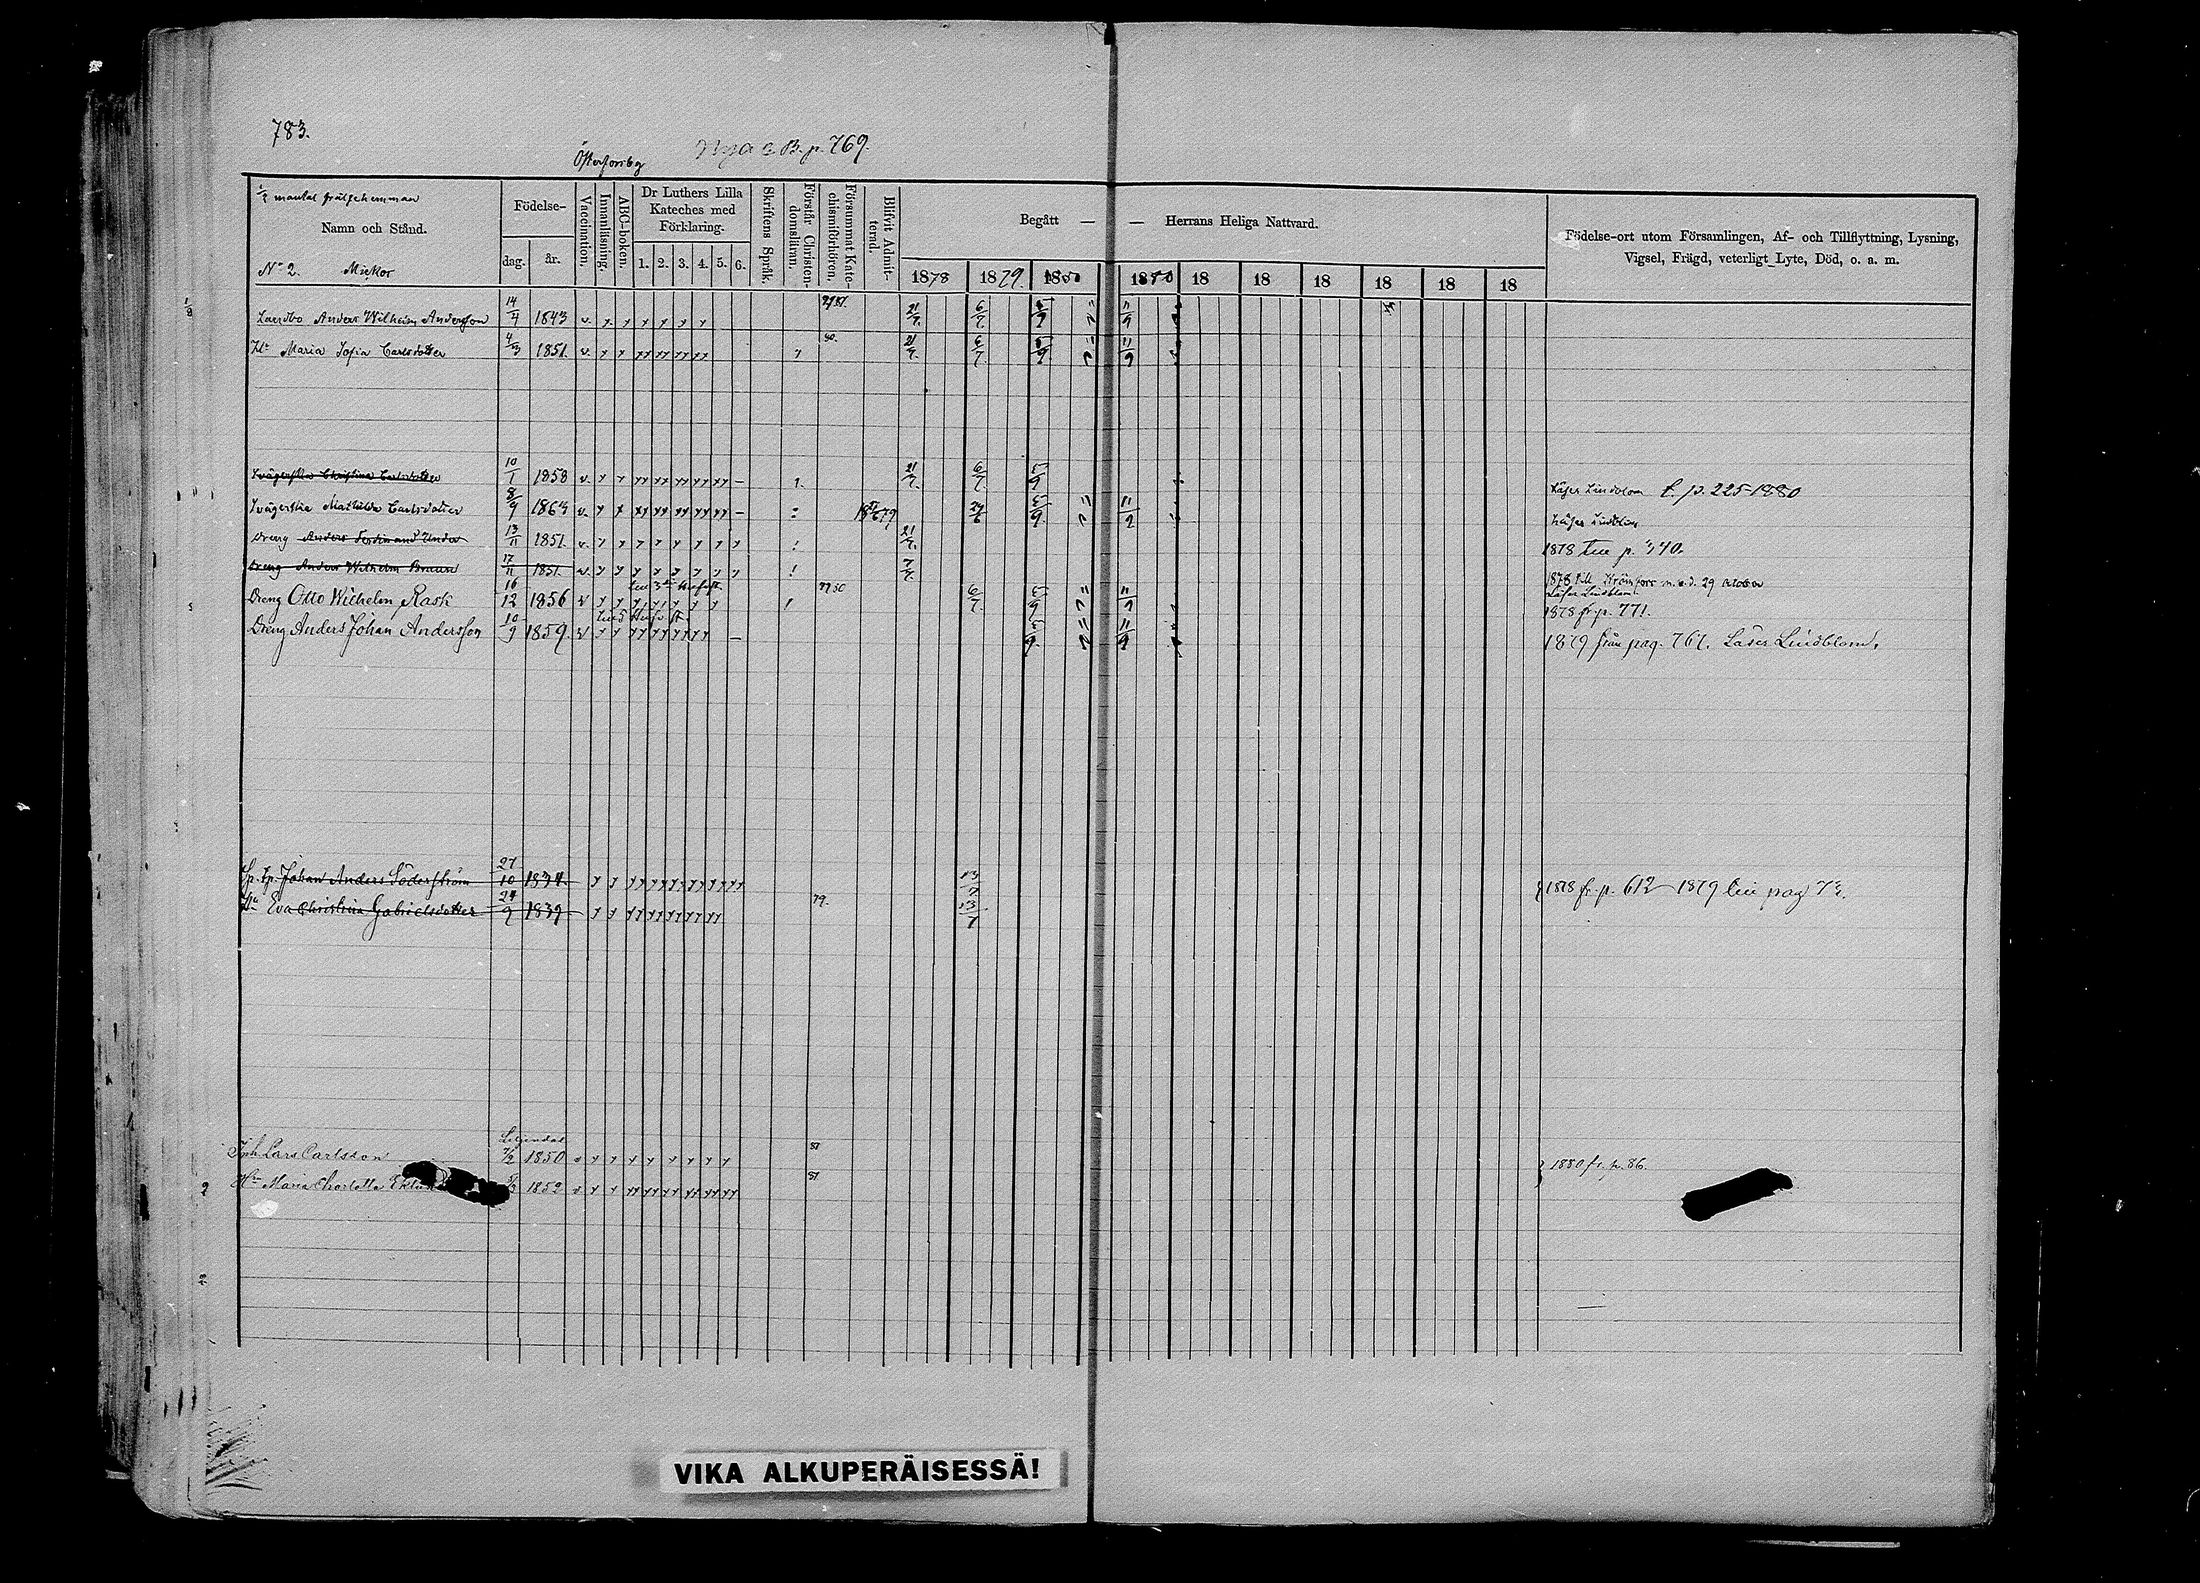 783.
Österforsby Nya C B. p. 769.
mantal frälsehemman
Namn och Stånd.
No 2. Mickor
Födelse-
dag. år.
Vaccination.
Innanläsning.
ABC-boken.
Dr Luthers Lilla Kateches med Förklaring.
1. 2. 3. 4. 5. 6.
Skriftens Språk.
Förstår Christendomsläran.
Försummat Katechismiförhören.
Blifvit Admitterad.
Begått — — Herrans Heliga Nattvard.
1878 1879. 1880 1880 18 18 18 18 18 18
Födelse-ort utom Församlingen, Af- och Tillflyttning, Lysning,
Vigsel, Frägd, veterligt Lyte, Död, o. a. m.
Landbo Anders Wilhelm Andersson 14/4 1843 v. 21/7. 6/7. 5/9 11/9
Hu Maria Sofia Carlsdotter 4/3 1851. v. 80. 21/7. 6/7. 5/9 11/9
Svägerska Christina Carlsdotter 10/1 1858 v. 21/7. 6/7. 5/9 Läser Lindblom t. p. 225-1880
Svägerska Mathilda Carlsdotter 8/9 1863 v. 5/9. 11/9 Läser Lindblom
Dreng Anders Ferdinand Under 13/11 1851. v. 21/7. 1878 till p. 340.
Dreng Anders Wilhelm Braun 17/11 1851. v. 7/7. 1878 till Strömfors m. b. d. 29 October
Dreng Otto Wilhelm Rask 16/12 1856 v 79 80 6/7. 5/9 11/9 Läser Lindblom. 1878 fr. p. 771.
Dreng Anders Johan Andersson 10/9 1859. v 5/9. 11/9 1879 från pag. 761. Läser Lindblom.
Sp. Johan Anders Söderström 27/10 1834. 13/7 1878 fr. p. 612 1879 till pag
Hu Eva Christina Gabrielsdotter 24/9 1839 79. 13/7
Liljendal
Inh. Lars Carlsson 7/2 1850 v 81 1880 fr. p. 86.
Hn Maria Charlotta 1852 v 81
VIKA ALKUPERÄISESSÄ!